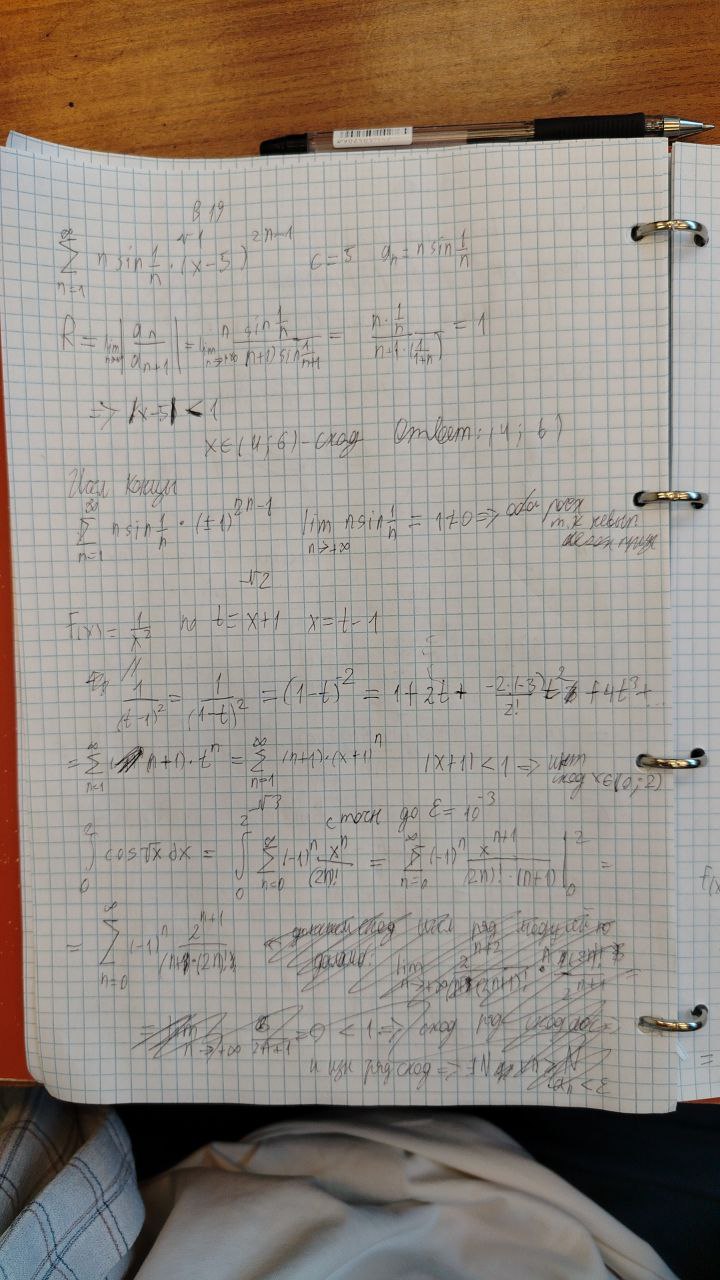 В 19
√1
∑_{n=1}^{∞} n sin 1/n · (x-5)^{2n-1} c=5 a_n = n sin 1/n
R = lim_{n→∞} |a_n/a_{n+1}| = lim_{n→+∞} n sin 1/n / (n+1) sin 1/(n+1) = n · 1/n / n+1 · (1/(1+n)) = 1
=> |x-5| < 1
x∈(4;6) - сход Ответ: (4; 6)
Иссл концы
∑_{n=1}^{∞} n sin 1/n · (±1)^{2n-1} lim_{n→+∞} n sin 1/n = 1≠0 => оба расх
т.к невып
√2
F(x) = 1/x² по t = x+1 x = t-1
1/(t-1)² = 1/(1-t)² = (1-t)^{-2} = 1 + 2t + -2·(-3)/2! t² + 4t³ + ...
= ∑_{n=1}^{∞} (n+1)·t^n = ∑_{n=1}^{∞} (n+1)·(x+1)^n |x+1| < 1 => инт
сход x∈(0;2)
√3 с точн до ε = 10^{-3}
∫_0^2 cos√x dx = ∫_0^2 ∑_{n=0}^{∞} (-1)^n x^n/(2n)! = ∑_{n=0}^{∞} (-1)^n x^{n+1}/((2n)!·(n+1)) |_0^2 =
= ∑_{n=0}^{∞} (-1)^n 2^{n+1}/((n+1)·(2n)!)
= lim_{n→+∞} = 0 < 1 => сход ряд
и ряд сход => ∃N
< ε
f(x
=